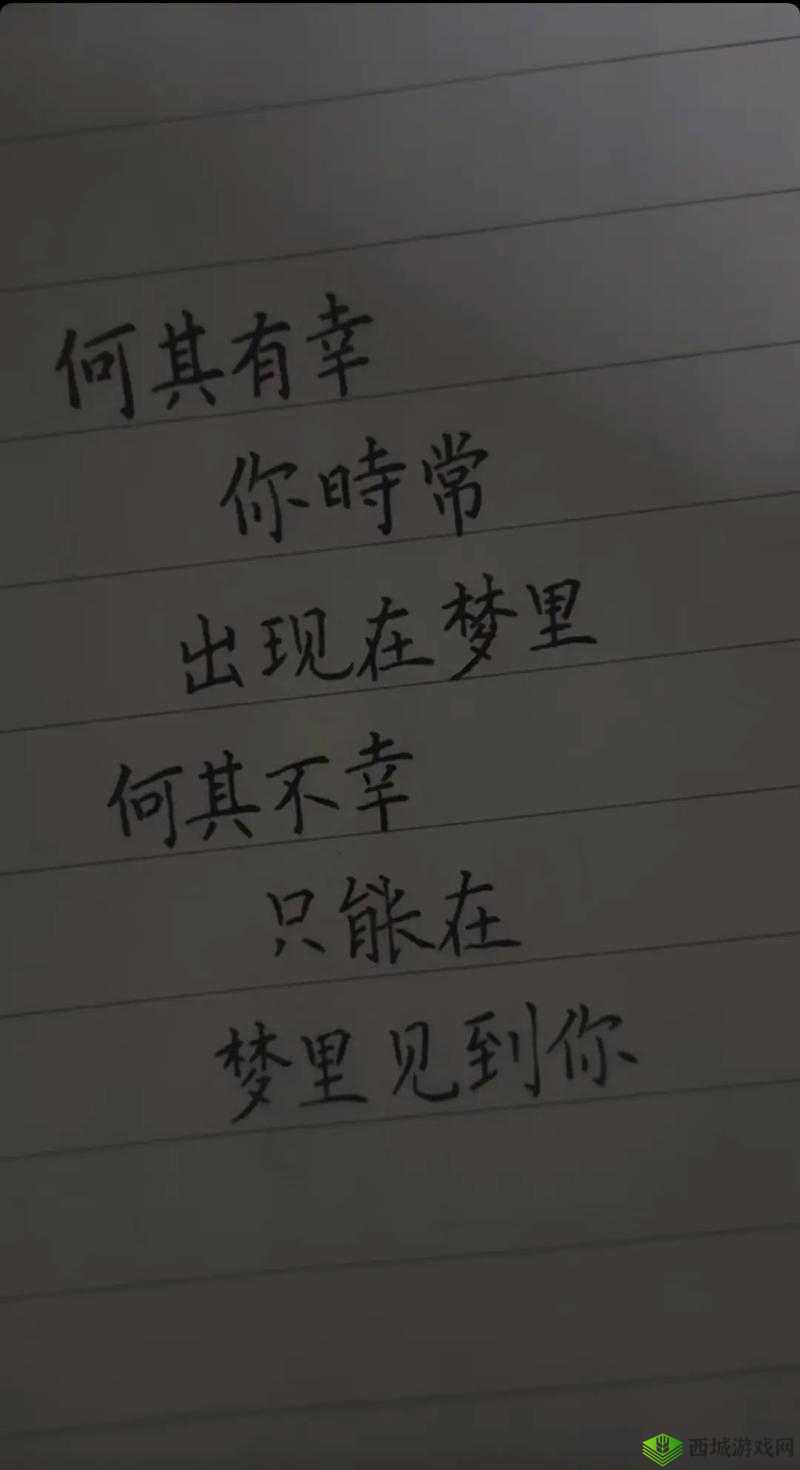 何其有幸
你時常
出现在梦里
何其不幸
只能在
梦里见到你
西城游戏网